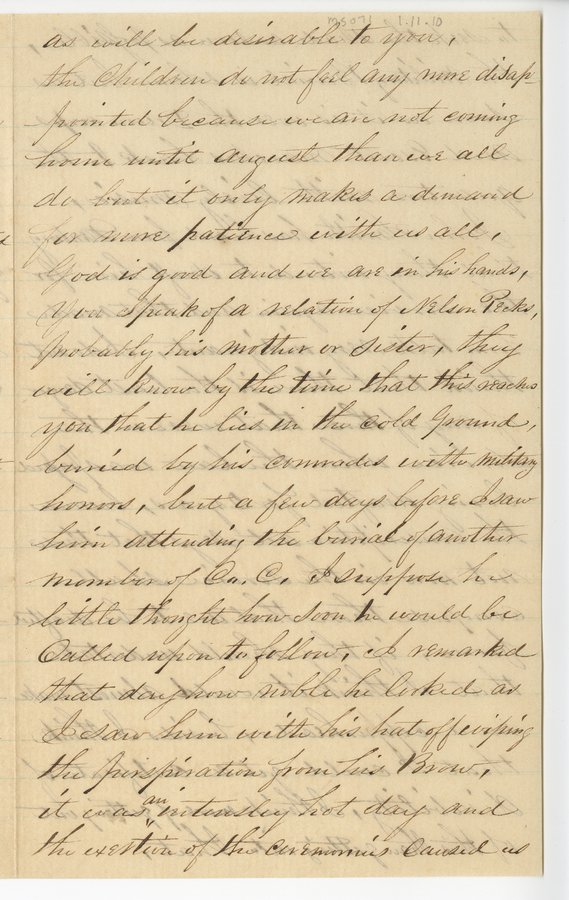 ms071 1.11.10
as will be desirable to you,
the Children do not feel any more disap-
pointed because we are not coming
home until august than we all
do but it only makes a demand
for more patience with us all,
God is good and we are in his hands,
You speak of a relation of Nelson Pecks,
probably his mother or sister, they
will know by the time that this reaches
you that he lies in the cold Ground,
buried by his comrades with military
honors, but a few days before I saw
him attending the burial of another
member of Co. C. I suppose he
little thought how soon he would be
Called upon to follow, I remarked
that day how noble he looked as
I saw him with his hat off wiping
the perspiration from his Brow,
it was an intensley hot day and
the exertion of the ceremonies caused us